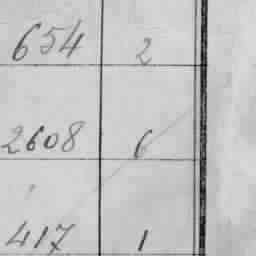 654 2
2608 6
417 1